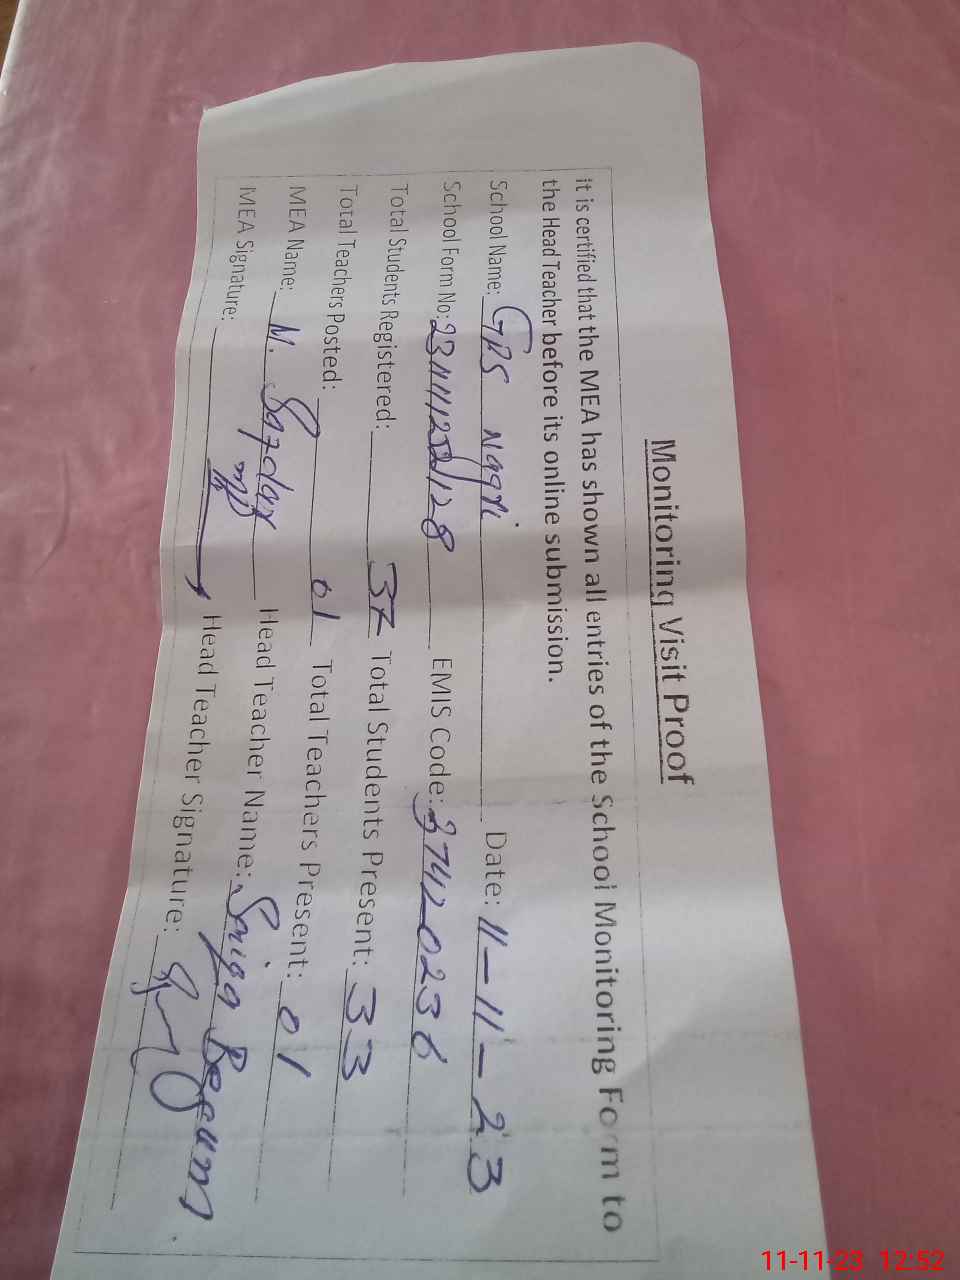 Monitoring Visit Proof
it is certified that the MEA has shown all entries of the School Monitoring Form to
the Head Teacher before its online submission.
School Name: GPS Date: 11-11-23
School Form No: EMIS Code: 37420236
Total Students Registered: 37 Total Students Present: 33
Total Teachers Posted: 01 Total Teachers Present: 01
MEA Name: M. Head Teacher Name: Saiqa Begum
MEA Signature: Head Teacher Signature:
11-11-23 12:52